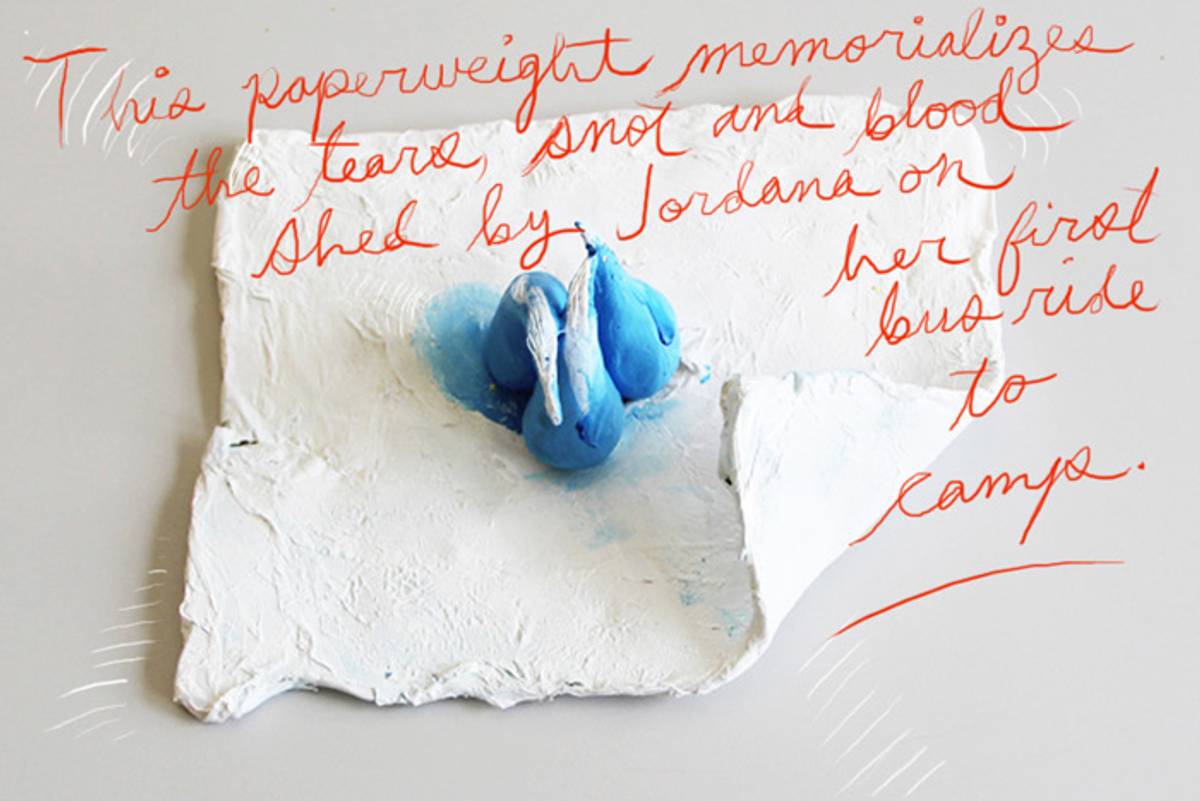 This paperweight memorializes
the tears, snot and blood
shed by Jordana on
her first
bus ride
to
camp.